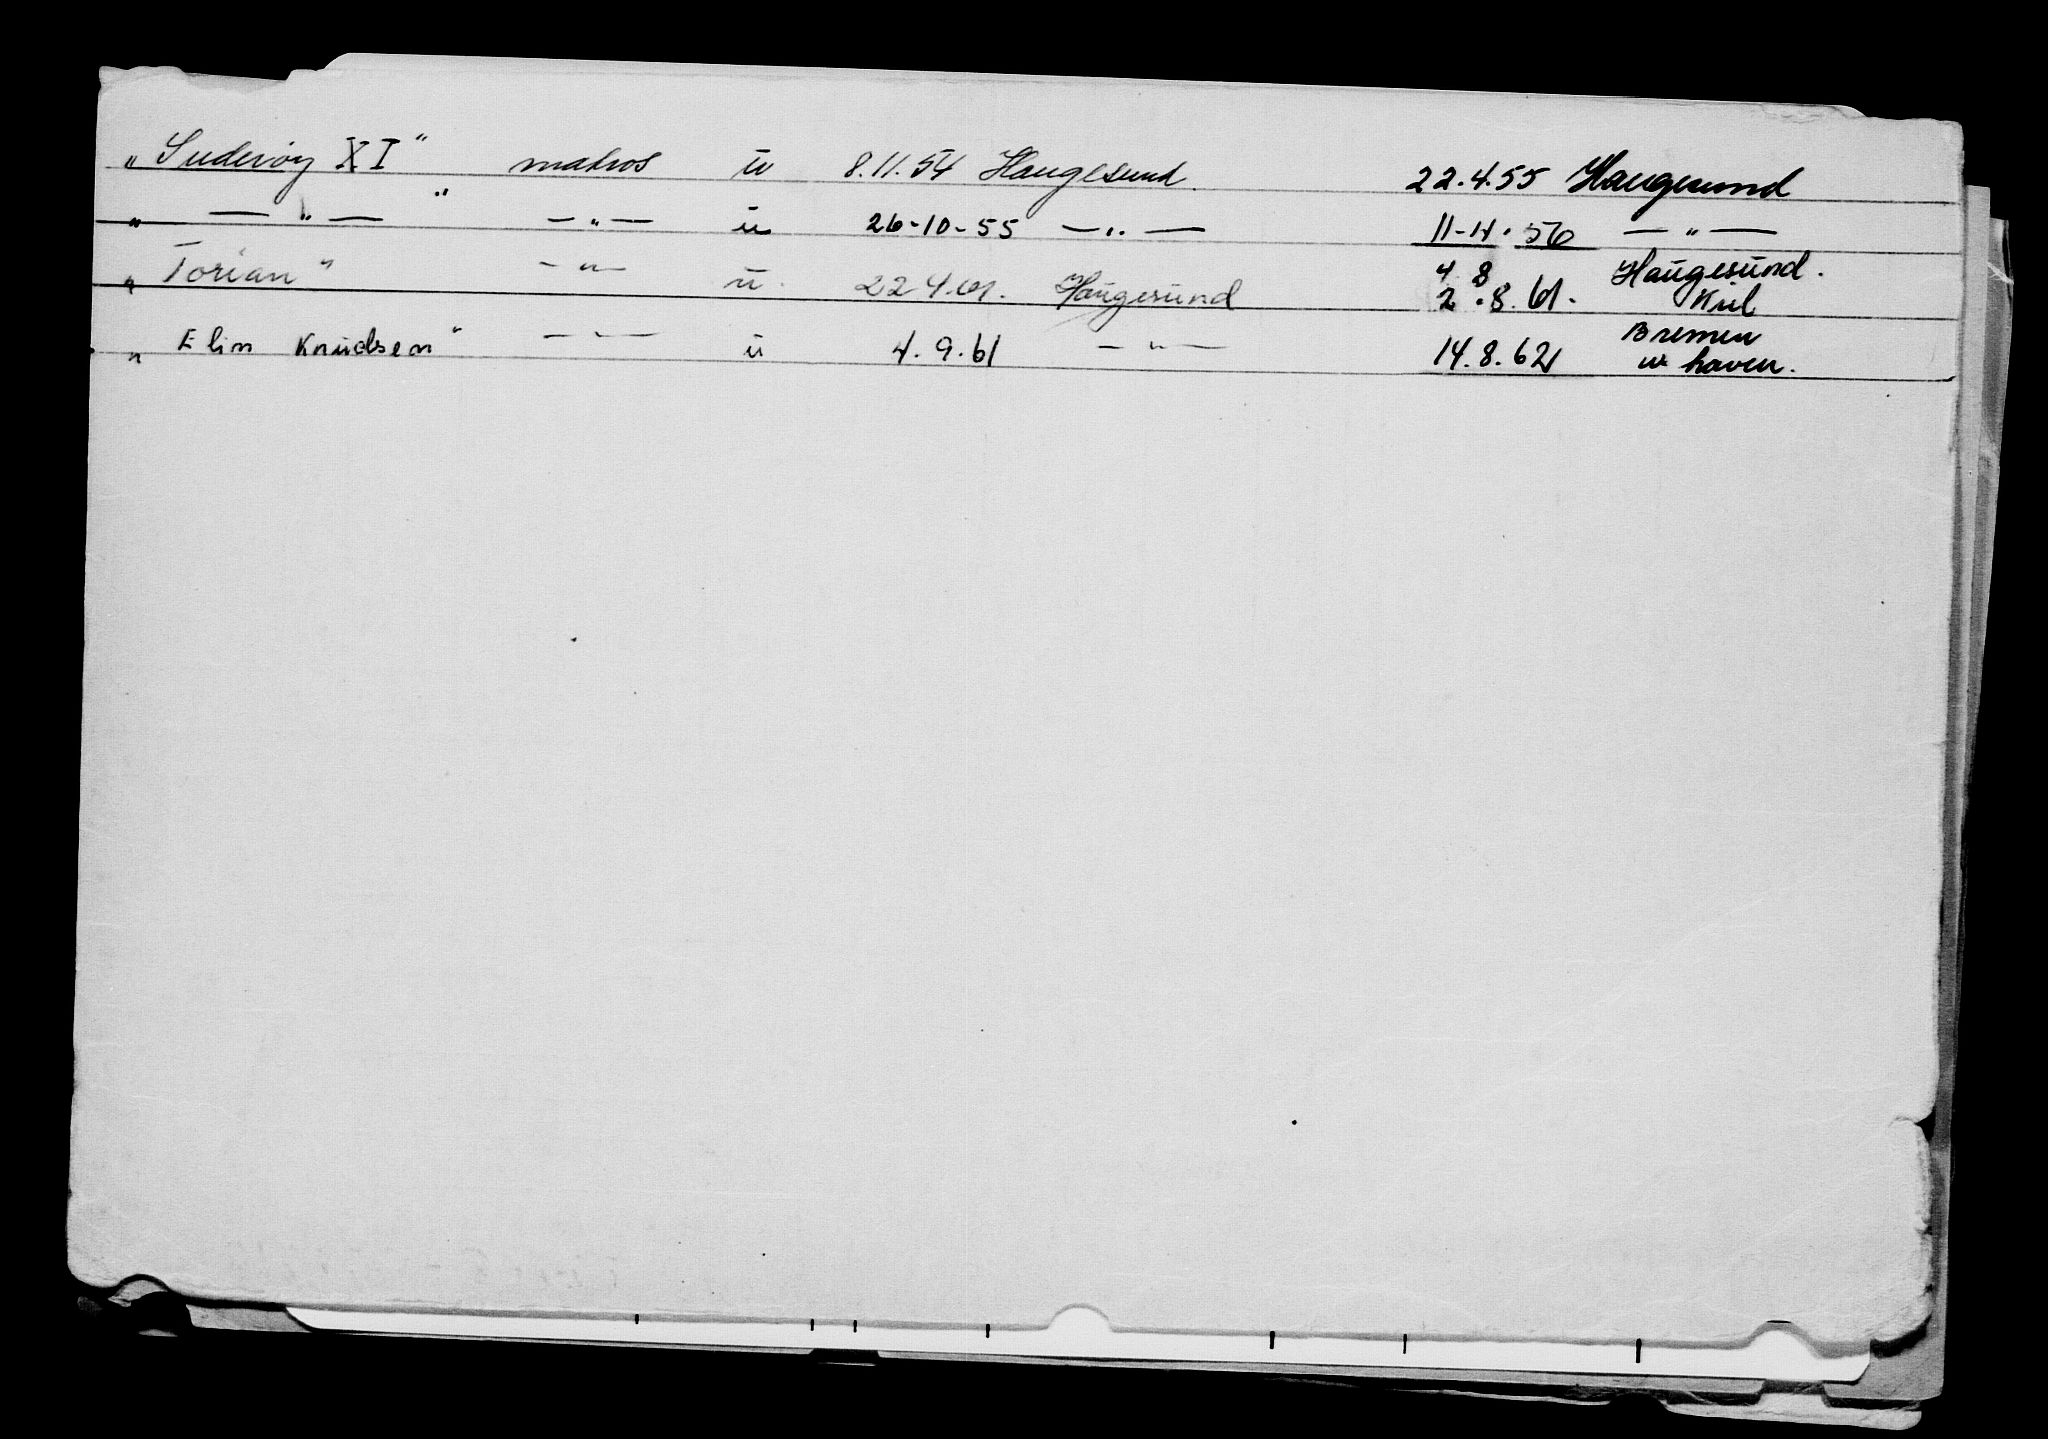 „ Suderøy XI “ matros u 8.11.54 Haugesund. 22.4.55 Haugesund
„ — „ — “ — „ — u 26-10-55 — „ — 11-4.56 — „ —
„ Torian “ — „ — u. 22 4.61. Haugesund 4. 8 Haugesund.
2.8.61. Kiel
„ Elin Knudsen “ — „ — u 4.9.61 — „ — 14.8.62 Bremen
haven.